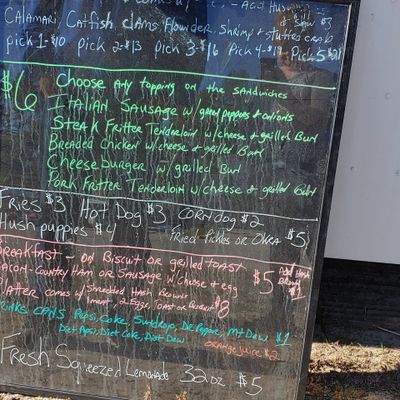 & Slaw $3
Calamari Catfish clams flounder Shrimp & stuffed crab
Pick 1-$10 Pick 2-$13 Pick 3-$16 Pick 4-$19 Pick 5
$6 Choose Any topping on the sandwiches
Italian Sausage w/ green peppers & onions
Steak Fritter Tenderloin w/ cheese & grilled Bun
Breaded Chicken w/ cheese & grilled Bun
Cheeseburger w/ grilled Bun
Pork Fritter Tenderloin w/ cheese & grilled Bun
Fries $3 Hot Dog $3 Corndog $2
Hush puppies $4 Fried Pickles or Okra $5
Breakfast - on Biscuit or grilled Toast $5 Add Hash Browns $1
Bacon - Country Ham or Sausage w/ Cheese & egg
Platter comes w/ Shredded Hash Browns
1 meat, 2 Eggs, Toast or Biscuit $8
Drinks Cans Pepsi, Coke, Sundrop, Dr Pepper, Mt Dew $1
Diet Pepsi, Diet Coke, Diet Dew
Orange Juice $2
Fresh Squeezed Lemonade 32oz $5